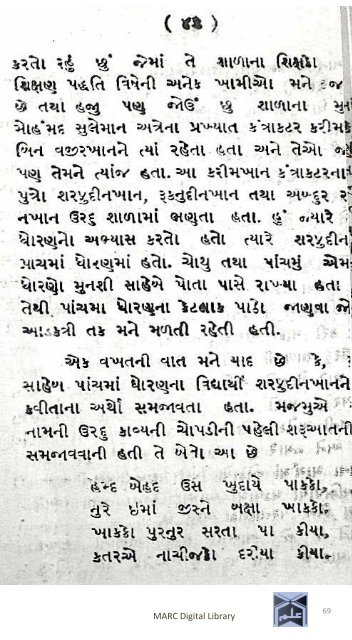 ( ૪૩ )
કરતો રહું છું જેમાં તે શાળાના શિક્ષકો
શિક્ષણ પદ્ધતિ વિષેની અનેક ખામીઓ મને જ
છે તથા હજુ પણ જોઉં છુ શાળાના મુન
મોહંમદ સુલેમાન અત્રેના પ્રખ્યાત કંત્રાકટર કરીમખ
બિન વજીરખાનને ત્યાં રહેતા હતા અને તેઓ જ
પણ તેમને ત્યાંજ હતા. આ કરીમખાન કંત્રાકટરના
પુત્રો શરફુદીનખાન, રૂકનુદીનખાન તથા અબ્દુર ર
નખાન ઉરદુ શાળામાં ભણતા હતા. હું જ્યારે
ધોરણનો અભ્યાસ કરતો હતો ત્યારે શરફુદીન
પાંચમાં ધોરણમાં હતો. ચોથુ તથા પાંચમું એમ
ધોરણો મુનશી સાહેબે પોતા પાસે રાખ્યા હતા
તેથી પાંચમા ધોરણના કેટલાક પાઠો જાણવા જો
આડકત્રી તક મને મળતી રહેતી હતી.
એક વખતની વાત મને યાદ છે કે,
સાહેબ પાંચમાં ધોરણના વિદ્યાર્થી શરફુદીનખાનને
કવીતાના અર્થો સમજાવતા હતા. મજમુએ
નામની ઉરદુ કાવ્યની ચોપડીની પહેલી શરૂઆતની
સમજાવવાની હતી તે બેતો આ છે
હમ્દ બેહદ ઉસ ખુદાયે પાકકો,
નુરે ઇમાં જીસ્ને બક્ષા ખાકકો.
ખાકકો પુરનુર સરતા પા કીયા,
કતરએ નાચીજકો દરીયા કીયા.
MARC Digital Library
69